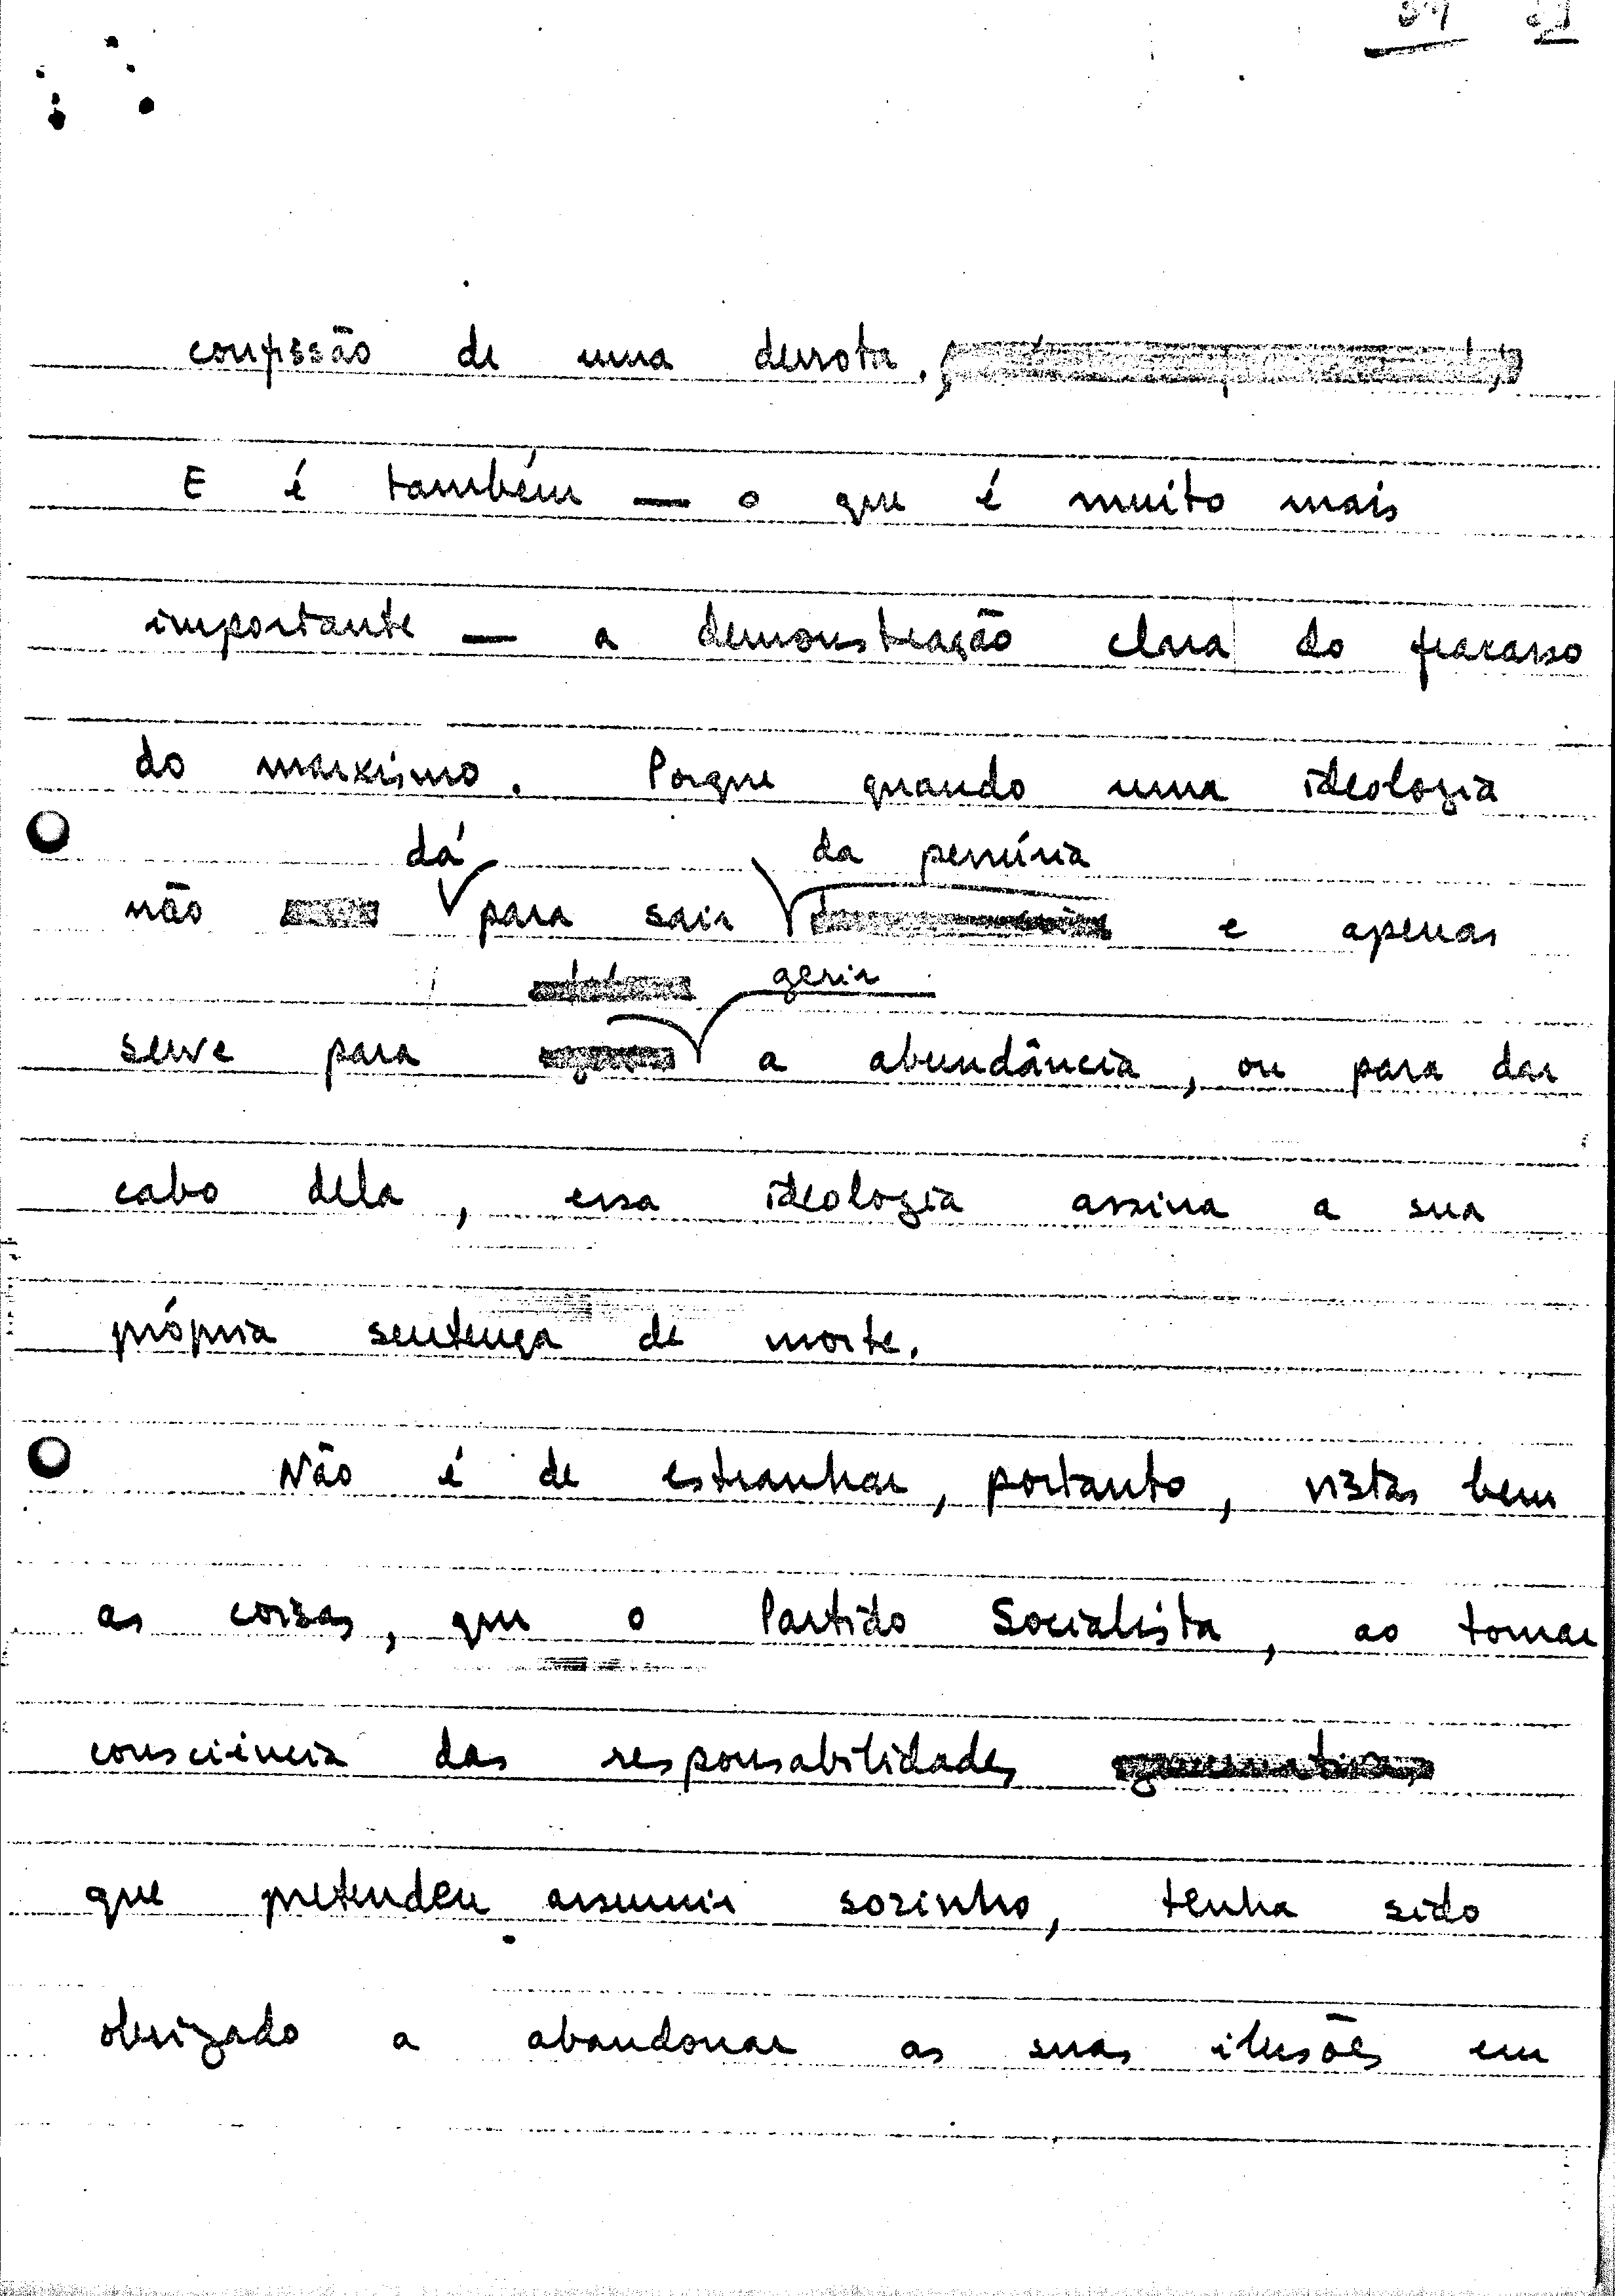 confissão de uma derrota.
E é também — o que é muito mais
importante — a demonstração clara do fracasso
do marxismo. Porque quando uma ideologia
não dá para sair da penúria e apenas
serve para gerir a abundância, ou para dar
cabo dela, essa ideologia assina a sua
própria sentença de morte.
Não é de estranhar, portanto, vistas bem
as coisas, que o Partido Socialista, ao tomar
consciência das responsabilidades
que pretendeu assumir sozinho, tenha sido
obrigado a abandonar as suas ilusões em